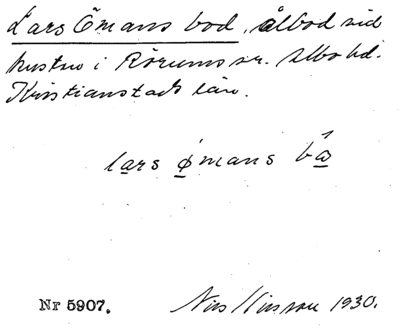 Lars Ömans bod, ålbod vid
kusten i Rörums sn. Albo hd.
Kristianstads län.
lars ømans bω
Nr 5907.
Nils Nilsson 1930.